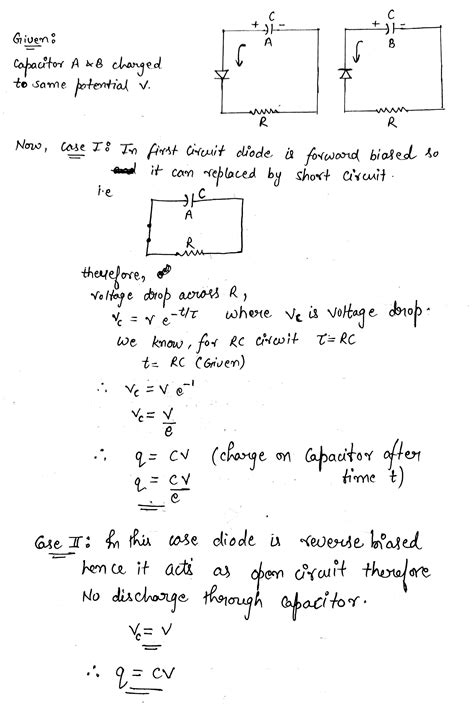 Given:
Capacitor A & B charged
to same potential V.
+ C -
A
R
+ C =
B
R
Now, Case I: In first circuit diode is forward biased so
it can replaced by short circuit.
i.e
C
A
R
therefore,
voltage drop across R,
Vc = V e^-t/τ where Vc is voltage drop.
We know, for RC circuit τ = RC
t = RC (Given)
∴ Vc = V e^-1
Vc = V/e
∴ q = CV (charge on capacitor after
q = CV/e time t)
Case II: In this case diode is reverse biased
hence it acts as open circuit therefore
No discharge thorough capacitor.
Vc = V
∴ q = CV